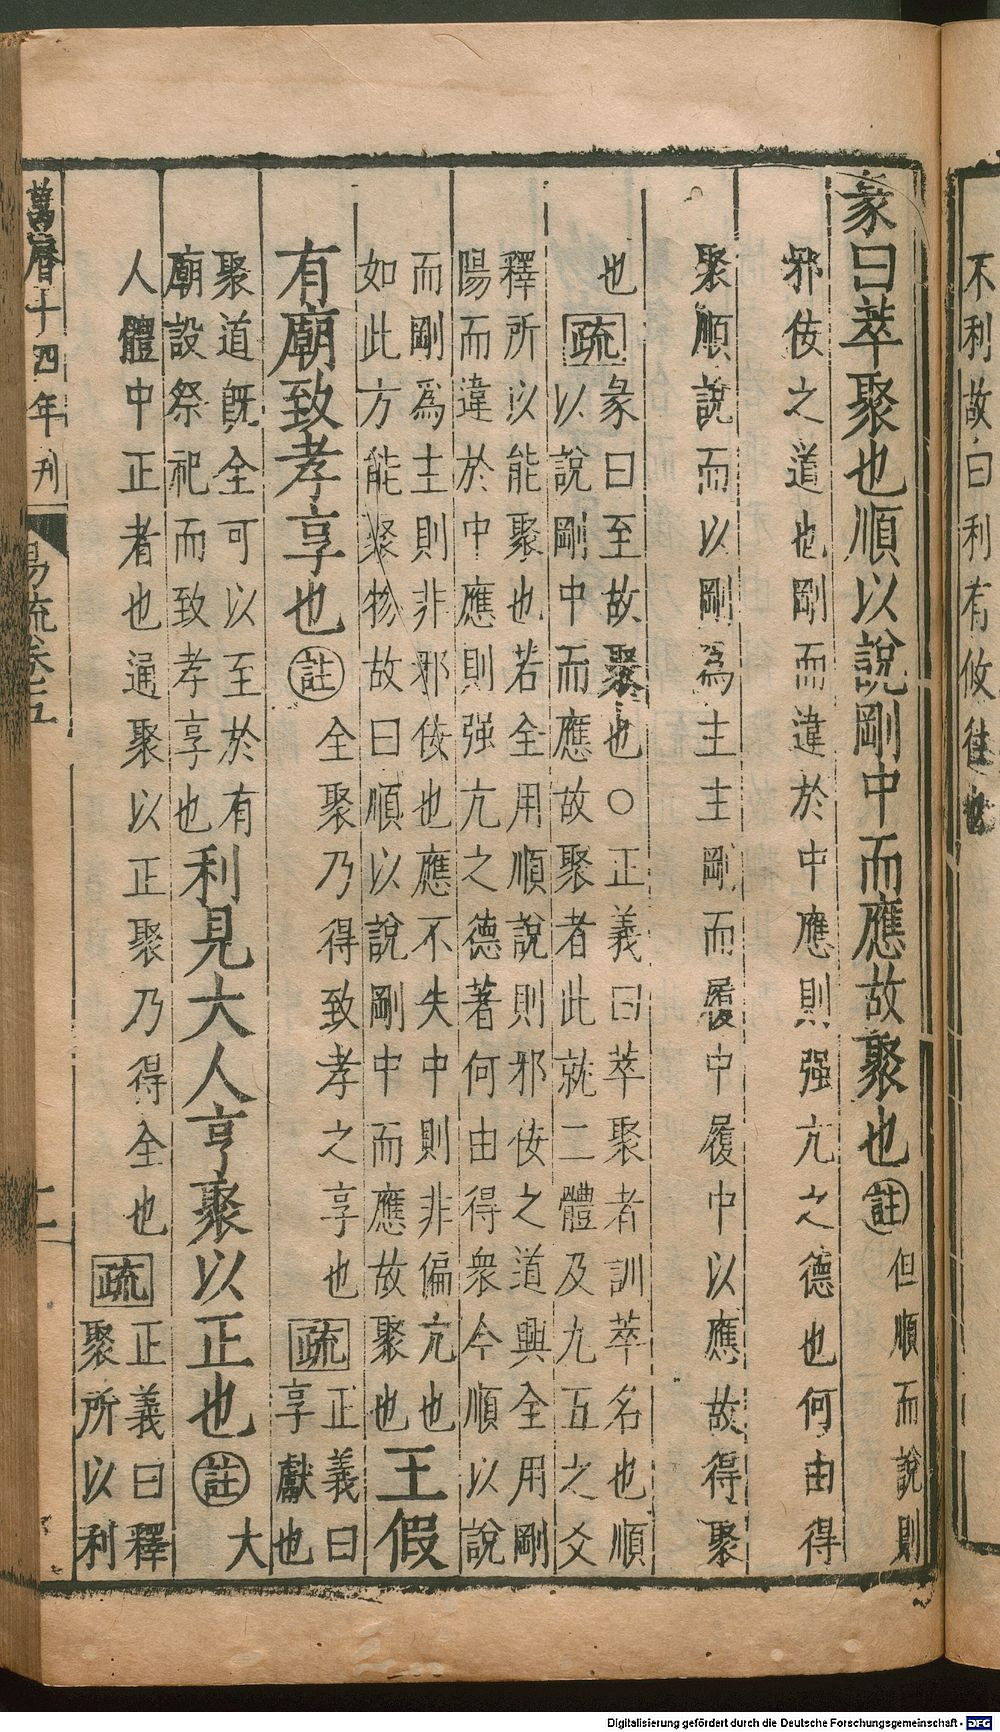 不利故曰利有攸往也
彖曰萃聚也順以說剛中而應故聚也註但順而說則
邪佞之道也剛而違於中應則强亢之德也何由得
聚順說而以剛為主主剛而履中履中以應故得聚
也疏彖曰至故聚也○正義曰萃聚者訓萃名也順
以說剛中而應故聚者此就二體及九五之爻
釋所以能聚也若全用順說則邪佞之道興全用剛
陽而違於中應則强亢之德著何由得衆今順以說
而剛為主則非邪佞也應不失中則非偏亢也
如此方能聚物故曰順以說剛中而應故聚也王假
有廟致孝享也註全聚乃得致孝之享也疏正義曰
享獻也
聚道旣全可以至於有
廟設祭祀而致孝享也利見大人亨聚以正也註大
人體中正者也通聚以正聚乃得全也疏正義曰釋
聚所以利
萬曆十四年刊
易疏卷五
Digitalisierung gefördert durch die Deutsche Forschungsgemeinschaft - DFG